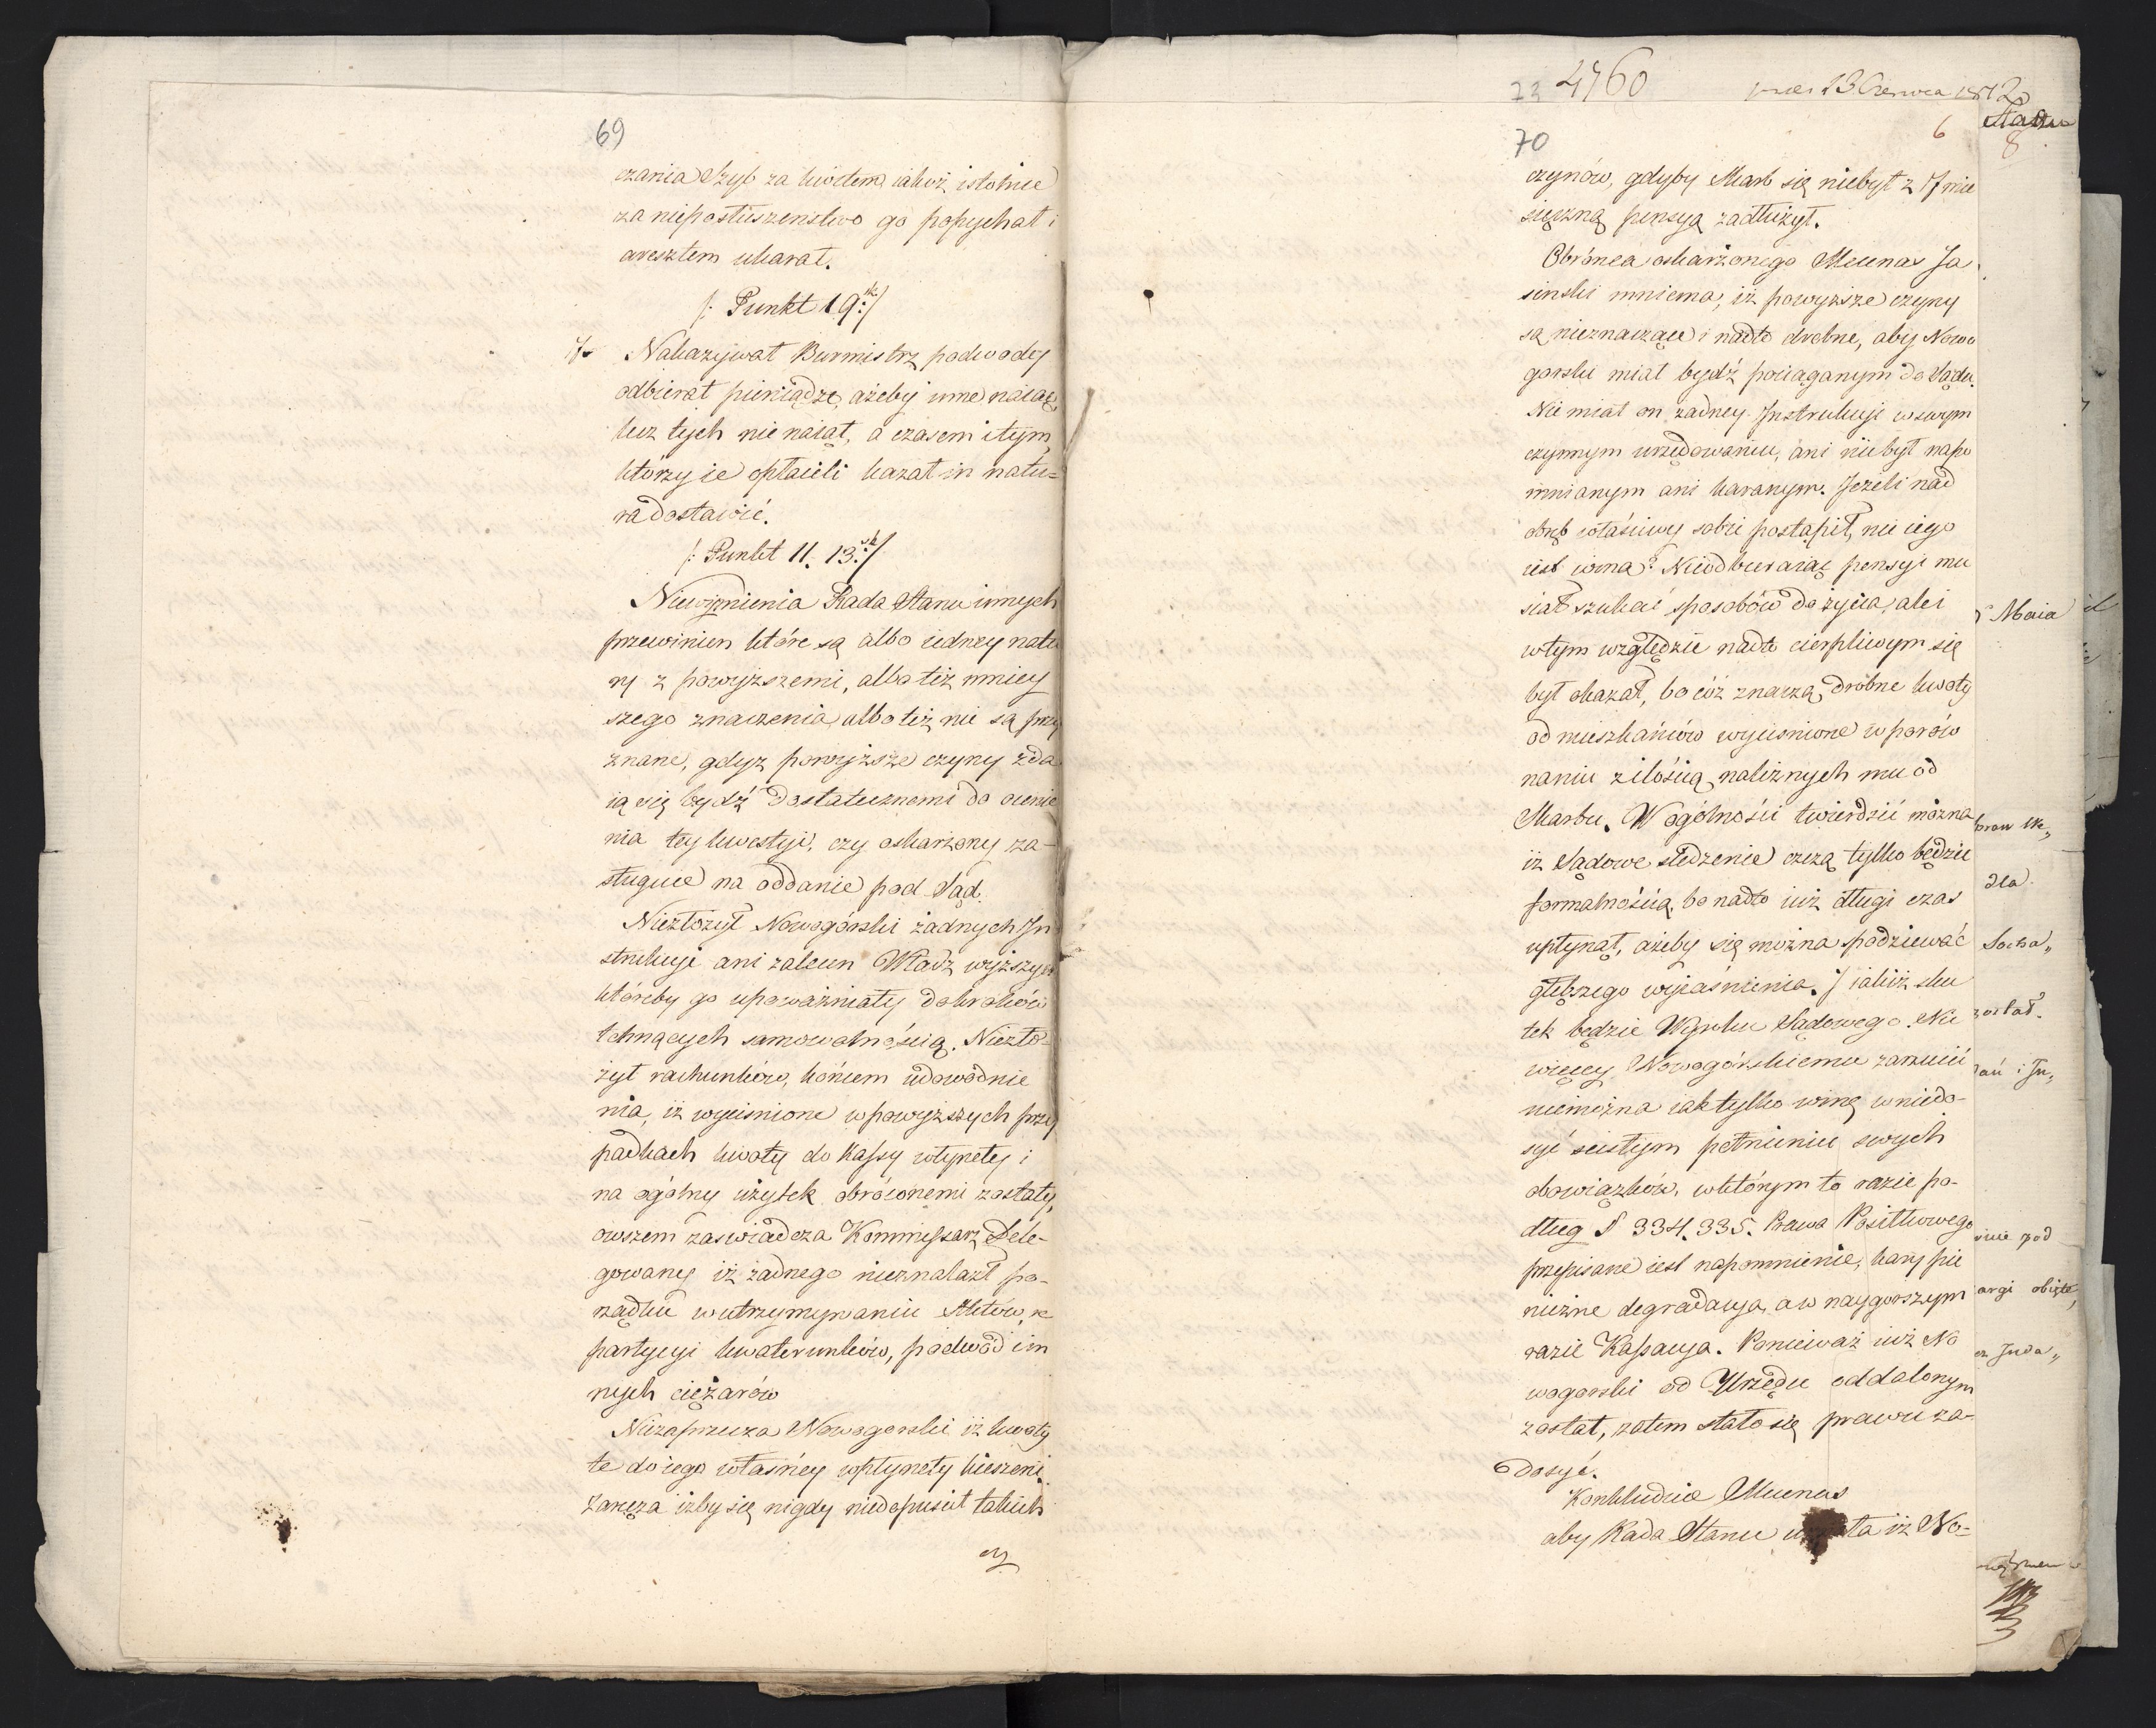 69
czania Szyb za kwotem iakoż istotnie
za nieposłuszenstwo go popychał i
aresztem ukarał.
/: Punkt 19. :/
7o Nakazywał Burmistrz podwody
odbierał pieniądze, ażeby inne naiąć
lecz tych nie naiął, a czasem i tym
którzy ie opłacili kazał in natu=
ra dostawić.
/: Punkt 11. 13. :/
Niewymienia Rada Stanu innych
przewinien które są albo iedney natu
ry z powyższemi, albo też mniey
szego znaczenia albo też nie są przy
znane, gdyż powyższe czyny zda
ią się bydź dostatecznemi do ocenie
nia tey kwestyi, czy oskarżony za-
sługuie na oddanie pod Sąd.
Niezłożył Nowogórski żadnych In
strukcyi ani zaleceń Władz wyższych
któreby go upoważniały do kroków
tchnących samowolnością. Niezło-
żył rachunków, końcem udowodnie
nia, iż wyciśnione w powyższych przy
padkach kwoty do Kassy włynęły i
na ogólny użytek obróconemi zostały,
owszem zaswiadcza Kommissarz Dele-
gowany iż żadnego nieznalazł po-
rządku w utrzymywaniu Aktów, re
partycyi kwaterunków, podwód i in
nych ciężarów
Niezaprzecza Nowogorski iż kwoty
te do iego własney wpłynęły kieszeni
zaręcza iżby się nigdy niedopuścił takich
czy
23 4760
13 Czerwca 1812
70
6
8
czynów, gdyby Skarb się niebył z 17 mie
sięczną pensyą zadłużył.
Obrónca oskarżonego Mecenas Ja
sinski mniema, iż powyższe czyny
są nieznaczące i nadto drobne, aby Nowo
gorski miał bydź pociąganym do Sądu.
Nie miał on żadney Instrukcyi w swym
czynnym urzędowaniu, ani niebył napo
mnianym ani karanym. Jeżeli nad
obręb właściwy sobie postąpił, nie iego
iest wina? Nieodbieraiąc pensyi mu
siał szukać sposobów do życia, ale i
wtym względzie nadto cierpliwym się
był okazał, bo cóż znaczą drobne kwoty
od mieszkańców wyciśnione w porów
naniu z ilością należnych mu od
Skarbu. W ogólności twierdzić można
iż Sądowe śledzenie czczą tylko będzie
formalnością, bo nadto iuż długi czas
upłynął, ażeby się można spodziewać
głębszego wyiaśnienia. I iakiż sku
tek będzie Wyroku Sądowego. Nic
więcey Nowogórskiemu zarzucić
niemożna iak tylko winę w niedo-
syć scisłym pełnieniu swych
obowiązków, w którym to razie po-
dług § 334. 335. Prawa Posiłkowego
przepisane iest napomnienie, kary pie
niężne degradacya, a w naygorszym
razie Kassacya. Ponieważ iuż No
wogorski od Urzędu oddalonym
został, zatem stało się prawu za-
dosyć.
Konkluduie Mecenas
aby Rada Stanu uznała iż No-
Maia
dla
Socha„
został.